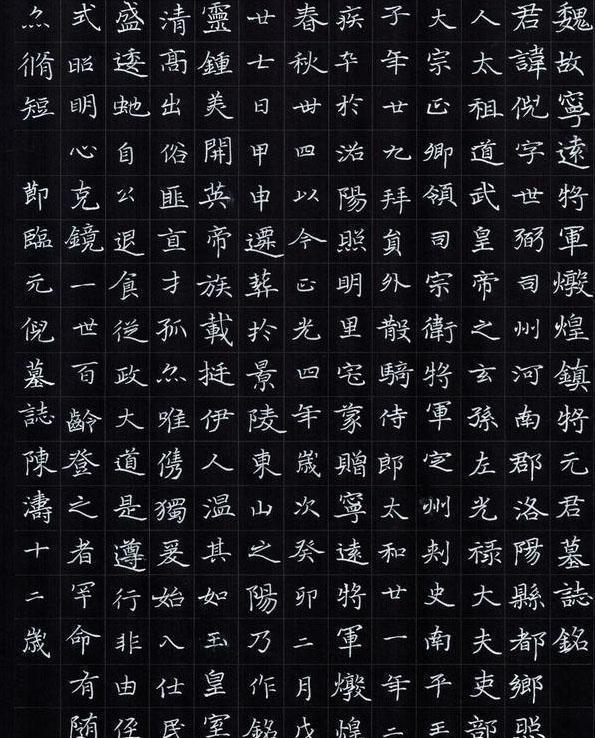 魏故寧遠將軍燉煌鎮將元君墓誌銘
君諱倪字世弼司州河南郡洛陽縣都鄉照
人太祖道武皇帝之玄孫左光祿大夫吏部
大宗正卿領司宗衛將軍定州刺史南平王
子年廿九拜員外散騎侍郎太和廿一年二
疾卒於洛陽照明里宅蒙贈寧遠將軍燉煌
春秋卌四以今正光四年歲次癸卯二月戊
廿七日甲申遷葬於景陵東山之陽乃作銘
靈鍾美開英帝族載挺伊人溫其如玉皇室
清高出俗匪直才孤亦唯儁獨爰始入仕民
盛逶虵自公退食從政大道是遵行非由侄
式昭明心克鏡一世百齡登之者罕命有隨
亦脩短 節臨元倪墓誌陳濤十二歲